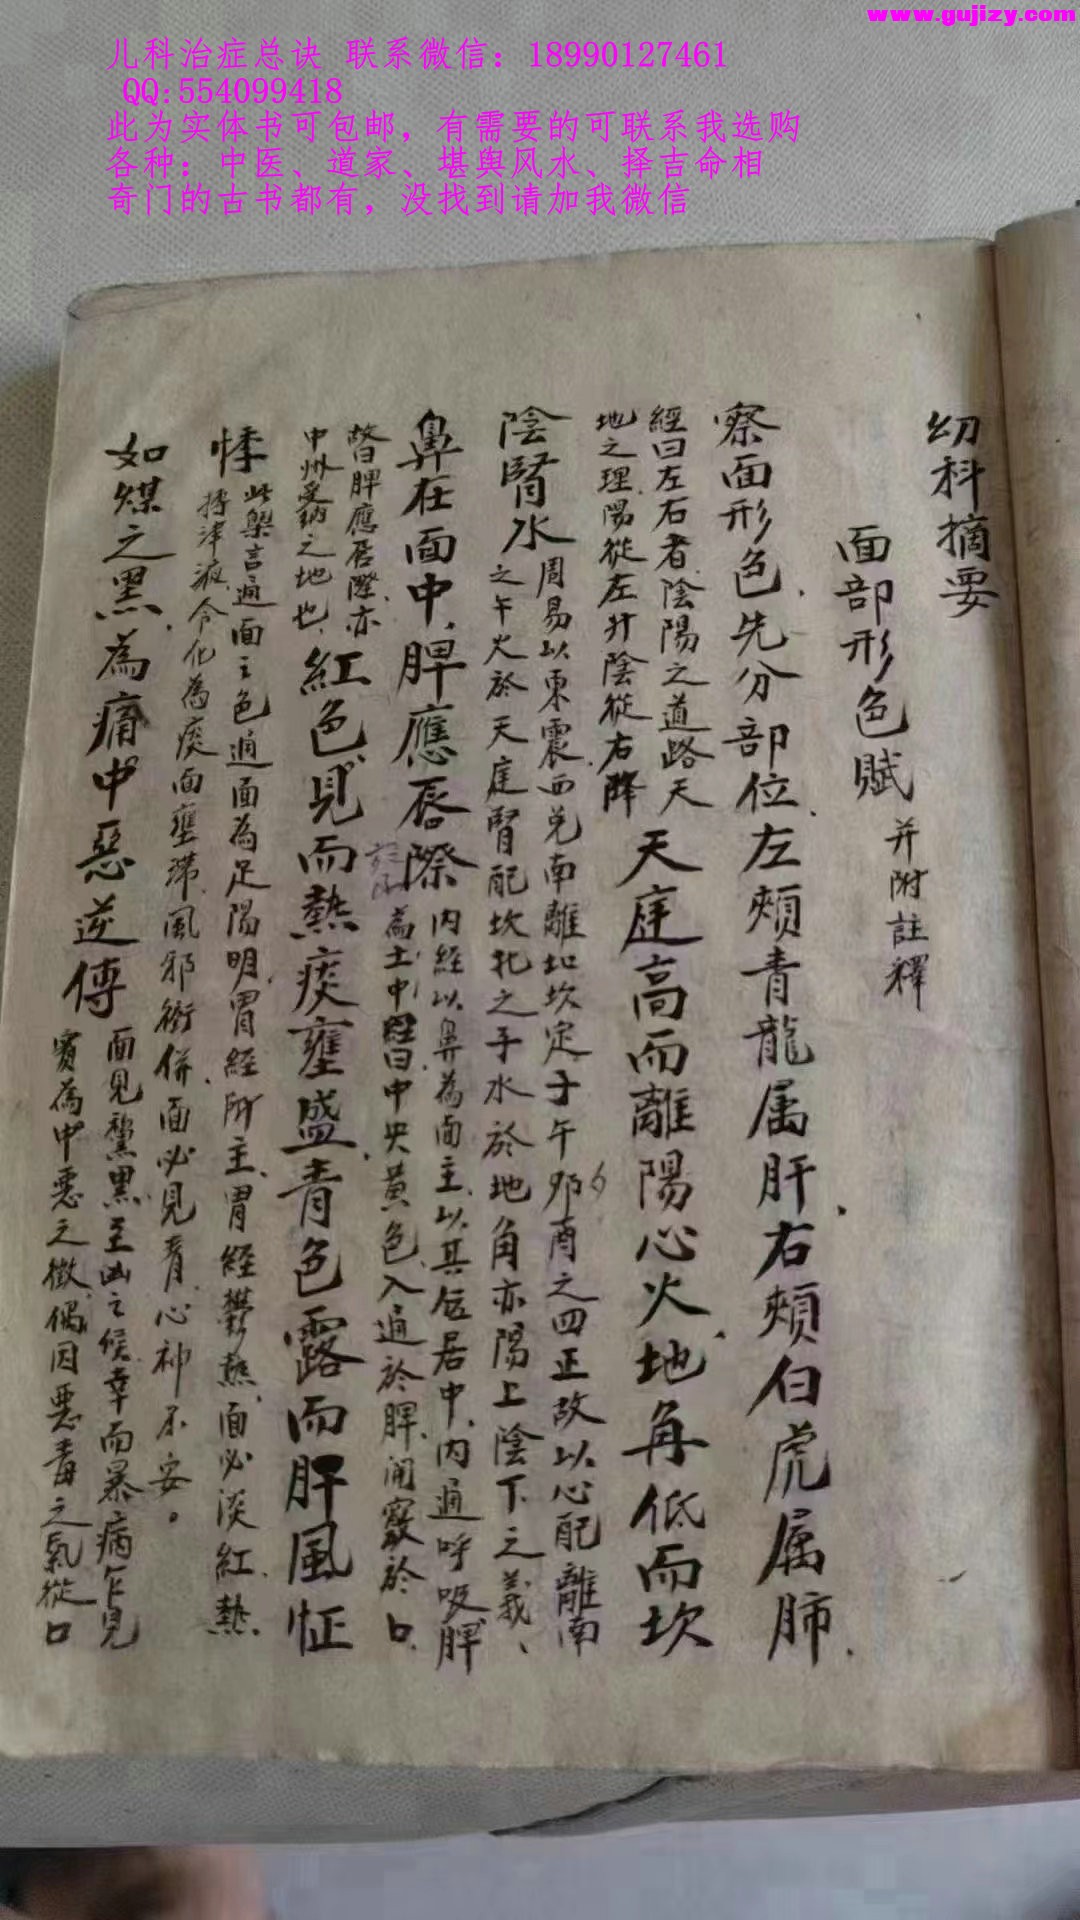 www.gujizy.com
儿科治症总诀 联系微信：18990127461
QQ:554099418
此为实体书可包邮，有需要的可联系我选购
各种：中医、道家、堪舆风水、择吉命相
奇门的古书都有，没找到请加我微信
幼科摘要
面部形色賦 并附註釋
察面形色、先分部位、左頰青龍属肝、右頰白虎属肺、
經曰左右者、陰陽之道路、天
地之理、陽從左升陰從右降
天庭高而離陽心火、地角低而坎
陰腎水
周易以東震西兌南離北坎定子午卯酉之四正故以心配離南
之午火於天庭腎配坎北之子水於地角亦陽上陰下之義、
鼻在面中、脾應唇際
內經以鼻為面主、以其位居中、内通呼吸、脾
為土中經曰中央黄色、入通於脾、開竅於口、
故曰脾應唇際、亦
中州受納之地也、
紅色見而熱痰壅盛、青色露而肝風怔
悸
此槩言通面之色、通面為足陽明、胃經所主、胃經鬱熱、面必淡紅、熱
摶津液、令化為痰、面壅滯、風邪衝併、面必見青、心神不安。
如煤之黑、為痛中惡逆傳
面見黧黑、至凶之候、幸而暴病乍見
實為中惡之徵、偶因惡毒之氣從口